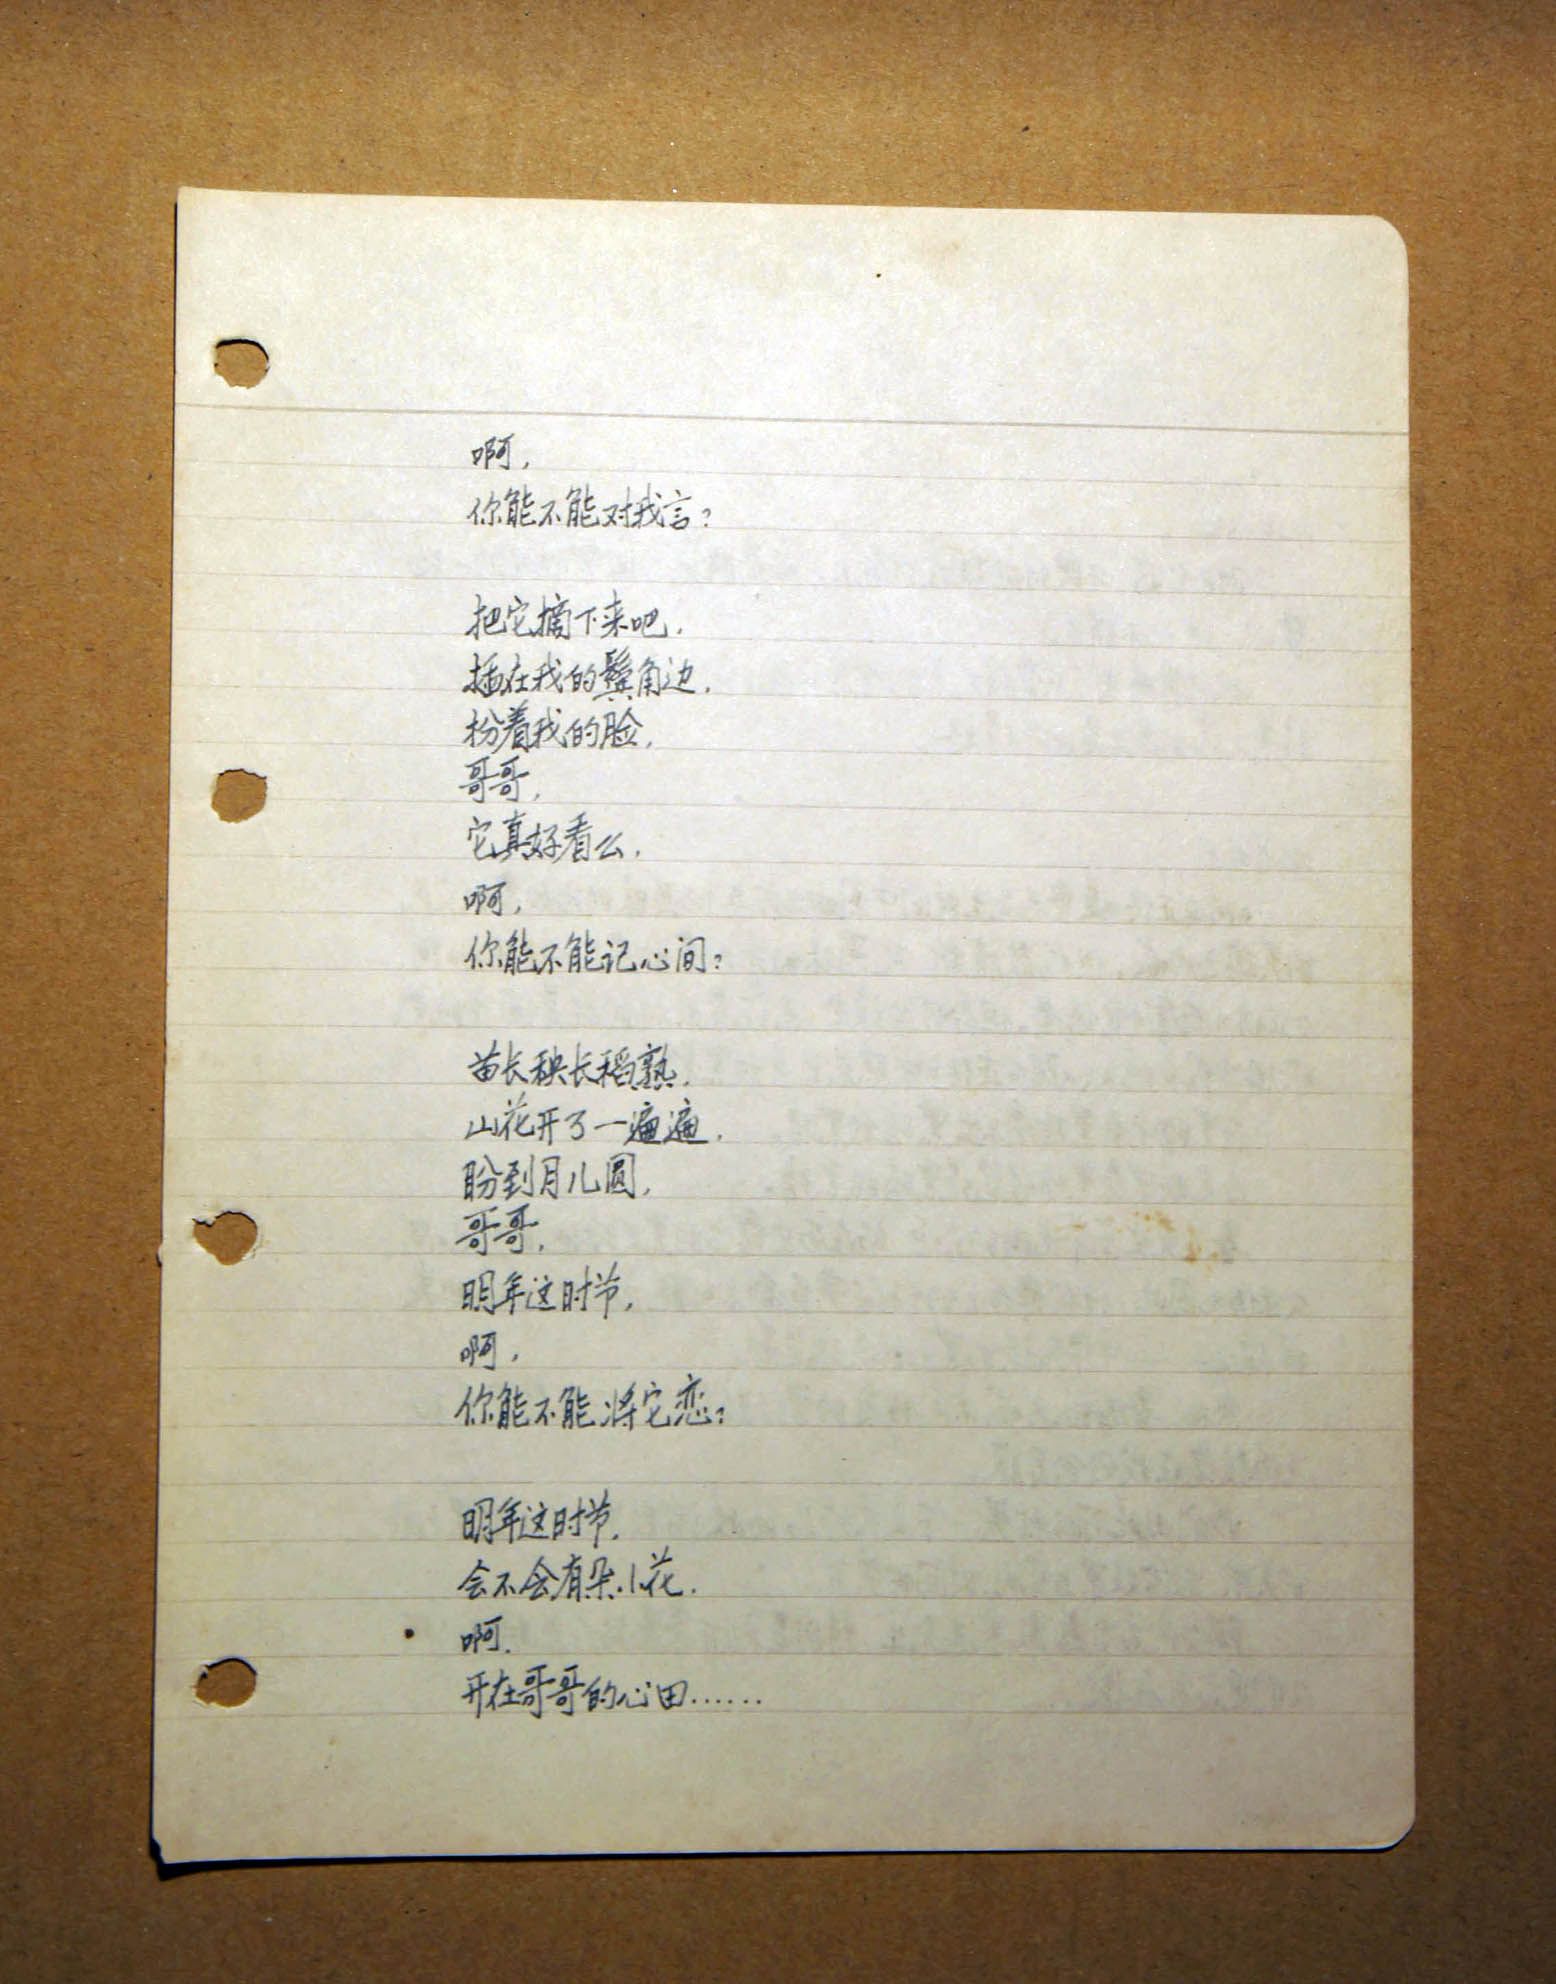 啊，
你能不能对我言？
把它摘下来吧，
插在我的鬓角边，
扮着我的脸，
哥哥，
它真好看么，
啊，
你能不能记心间？
苗长秧长稻熟，
山花开了一遍遍，
盼到月儿圆，
哥哥，
明年这时节，
啊，
你能不能将它恋？
明年这时节，
会不会有朵小花，
啊，
开在哥哥的心田……